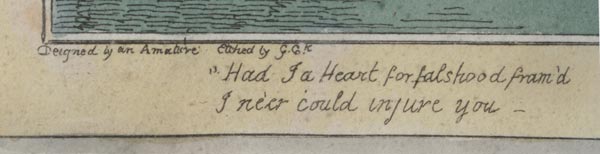 Designed by an Amature Etched by G.Ck
"Had I a Heart for falshood fram'd
I ne'er could injure you –